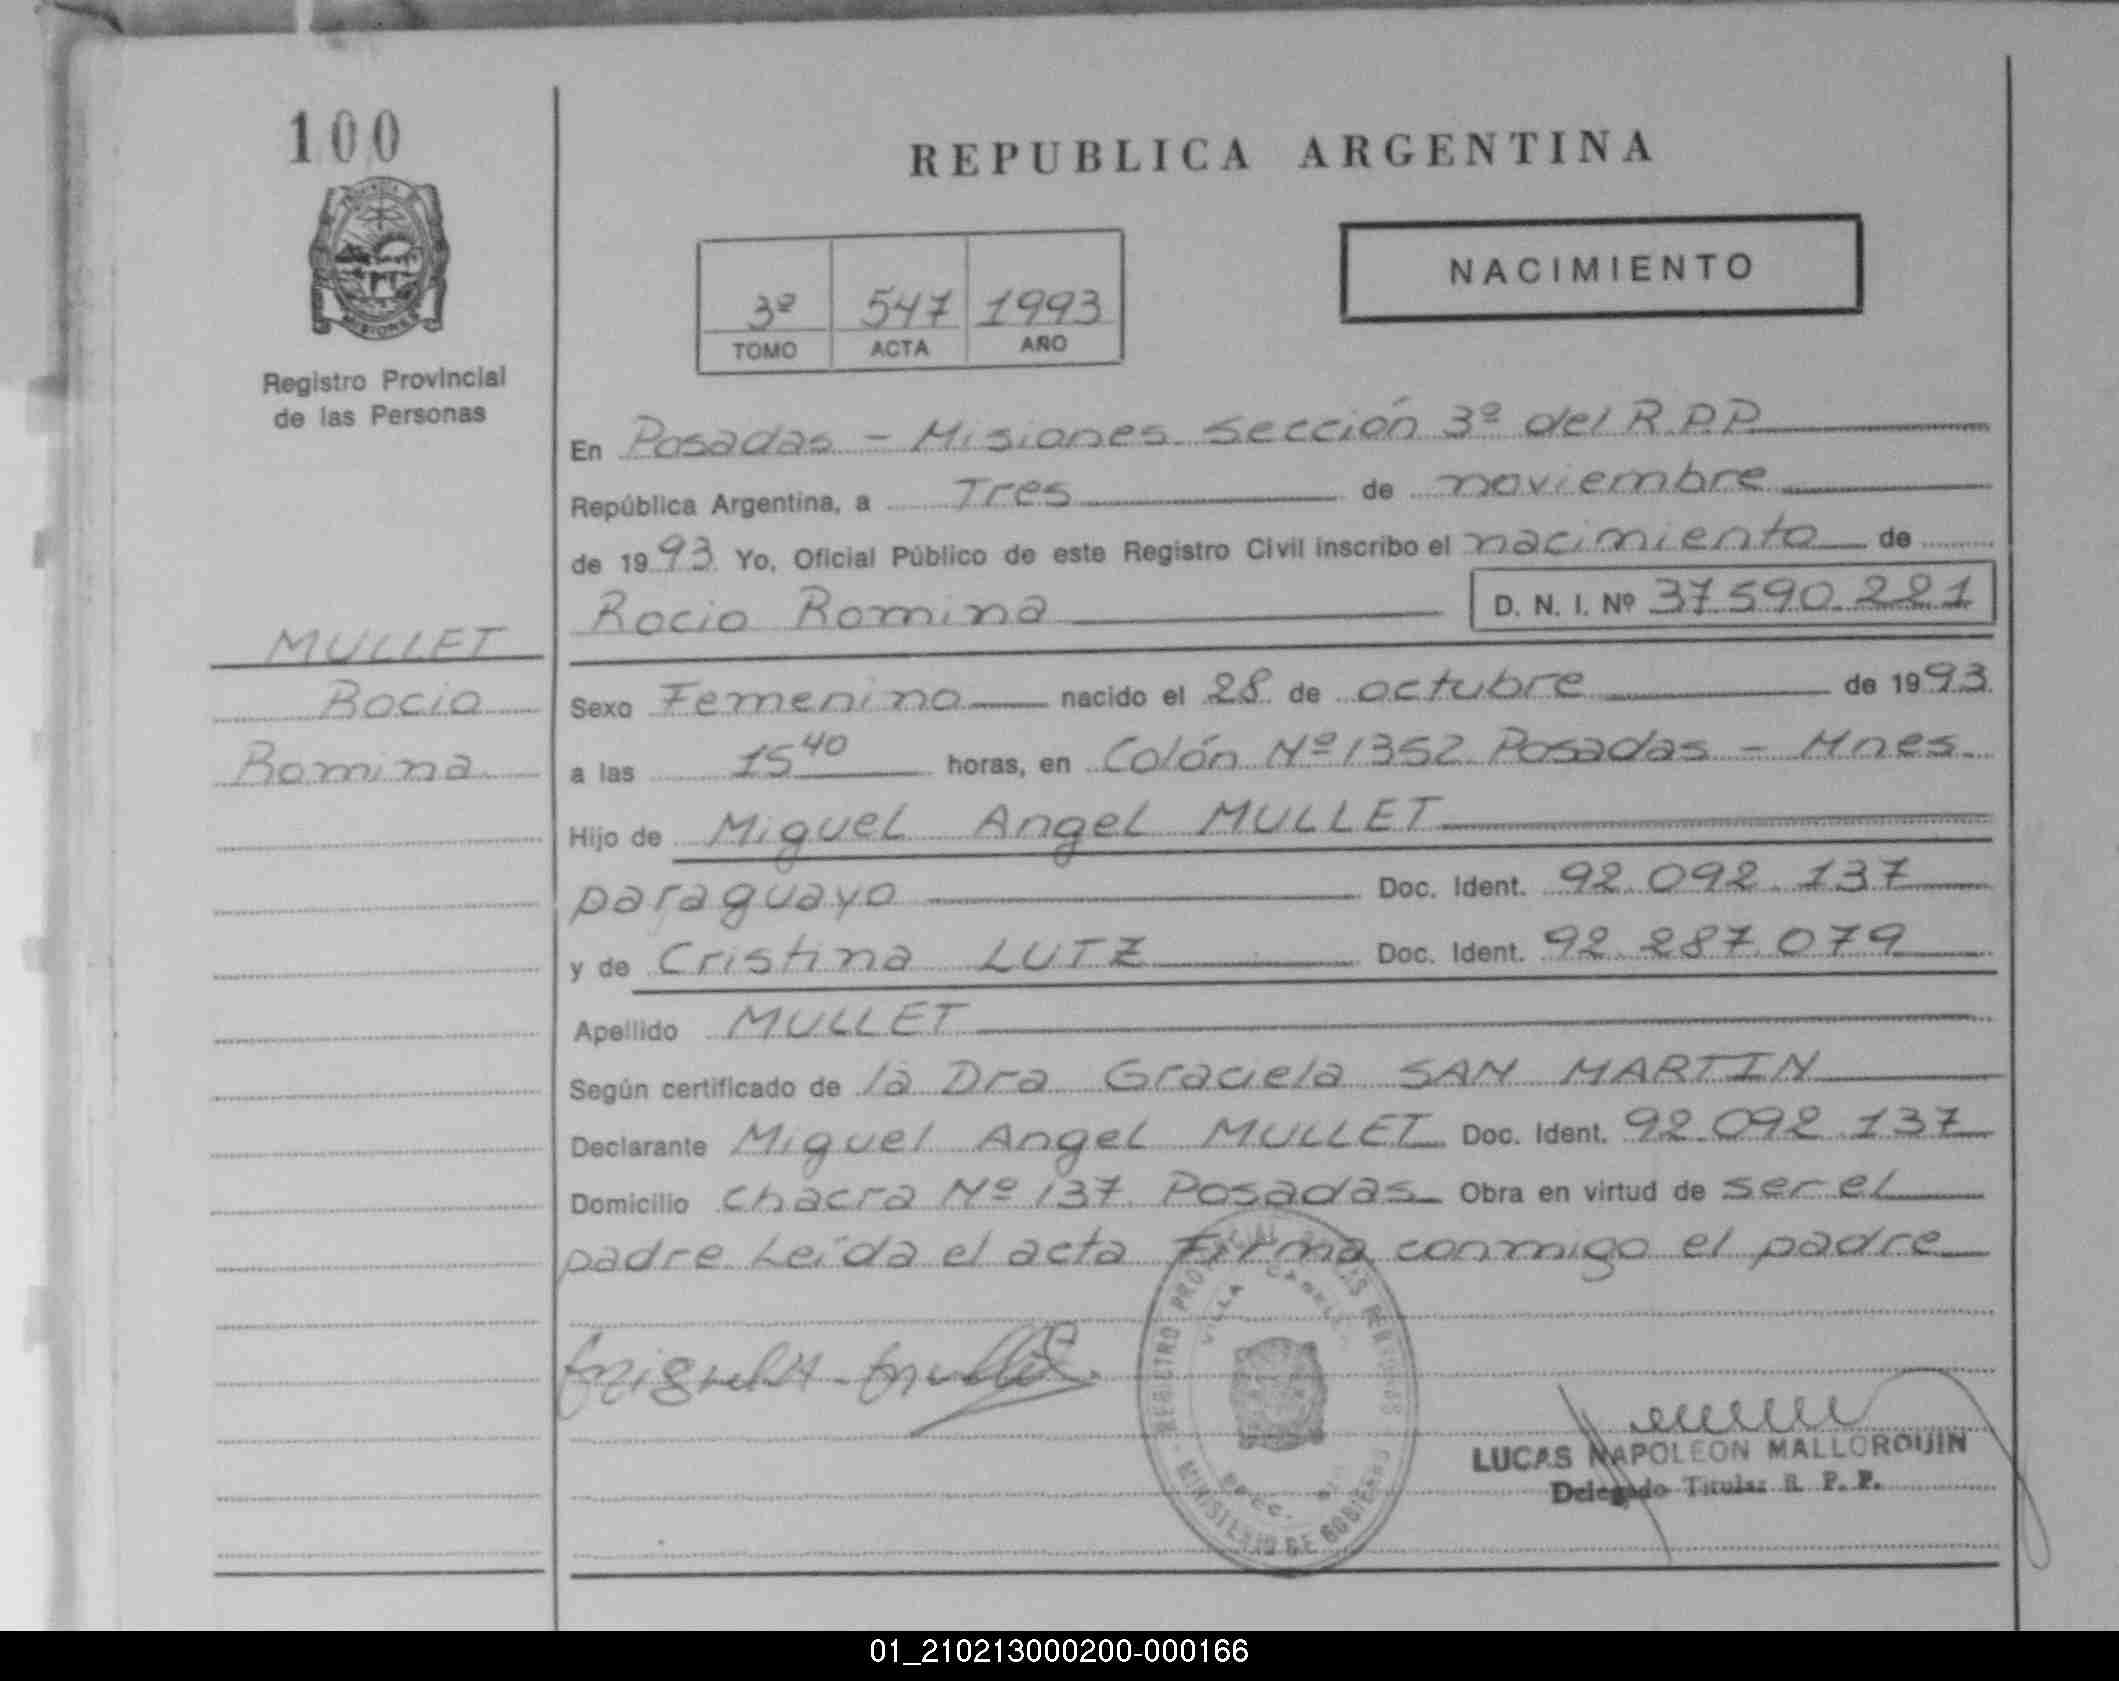 100
MISIONES
Registro Provincial
de las Personas
REPUBLICA ARGENTINA
NACIMIENTO
3º 547 1993
TOMO ACTA AÑO
En Posadas - Misiones Sección 3º del R.P.P.
República Argentina, a Tres de noviembre
de 1993 Yo, Oficial Público de este Registro Civil inscribo el nacimiento de
Rocio Romina D. N. I. Nº 37.590.221
MULLET
Rocio
Romina
Sexo Femenino nacido el 28 de octubre de 1993
a las 15 40 horas, en Colón Nº 1352 Posadas - Mnes.
Hijo de Miguel Angel MULLET
paraguayo Doc. Ident. 92.092.137
y de Cristina LUTZ Doc. Ident. 92.287.079
Apellido MULLET
Según certificado de la Dra Graciela SAN MARTIN
Declarante Miguel Angel MULLET Doc. Ident. 92.092.137
Domicilio Chacra Nº 137 Posadas Obra en virtud de ser el
padre Leída el acta Firma conmigo el padre
REGISTRO PROVINCIAL DE LAS PERSONAS
VILLA CABELLO
MINISTERIO DE GOBIERNO
LUCAS NAPOLEON MALLORQUIN
Delegado Titular R. P. P.
01_210213000200-000166